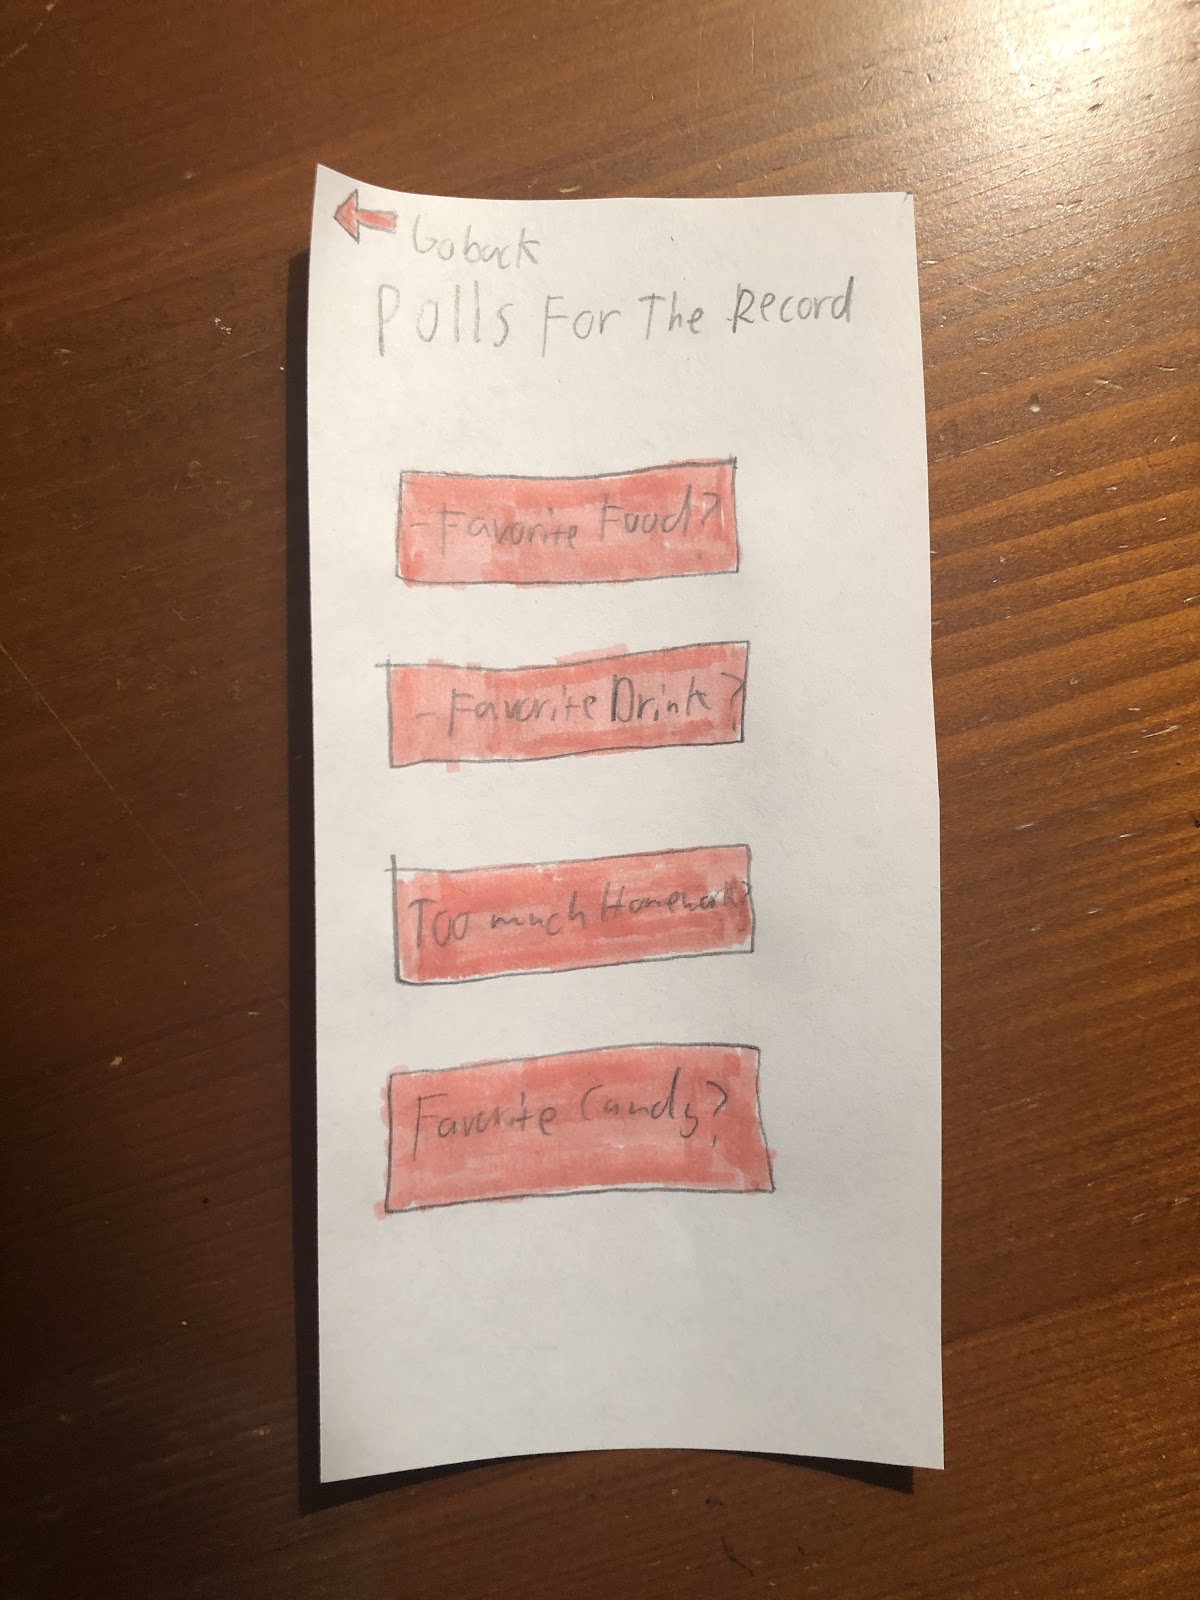 Go back
Polls For The Record
- Favorite Food?
- Favorite Drink?
Too much Homework?
Favorite Candy?